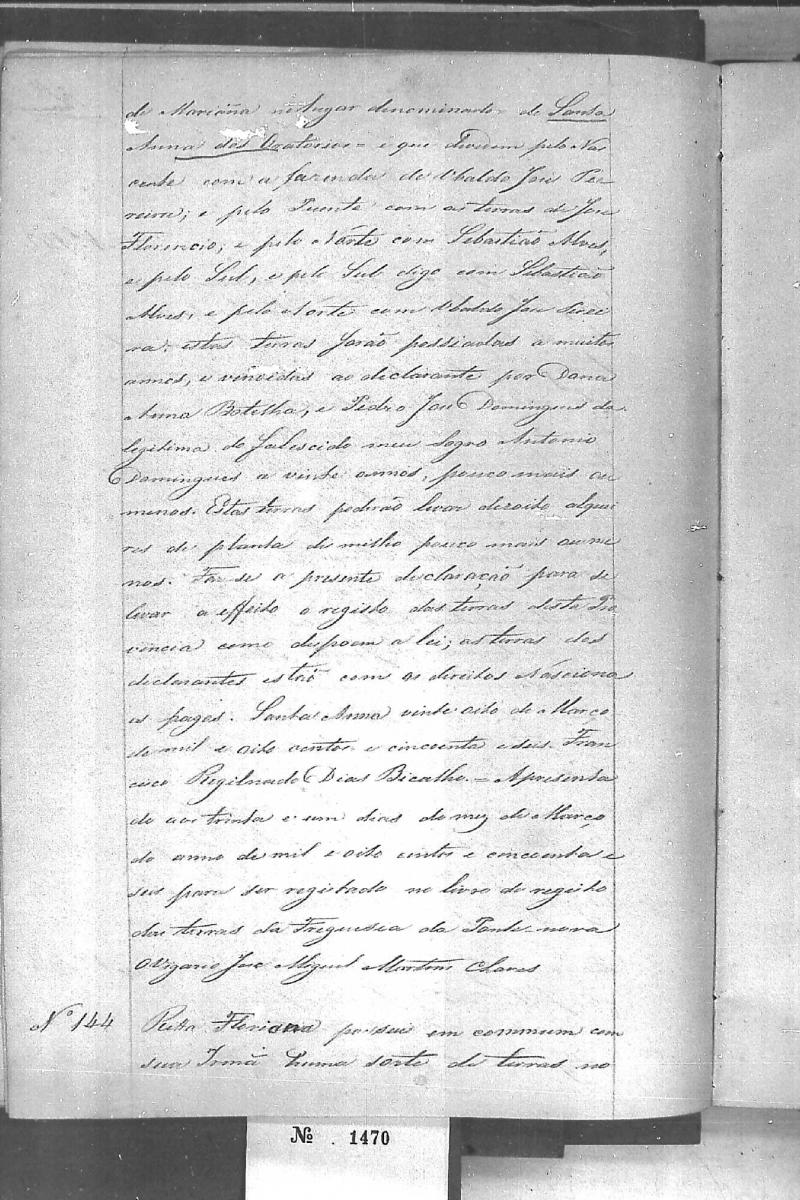 de Mariana no lugar denominado de Santa
Anna dos Oratorios = e que devidem pelo Nas
cente com a fazenda de Ubaldo Jose Pe
reira; e pelo Puente com as terras de Jose
Florencio, e pelo Nórte com Sebastião Alves,
e pelo Sul, e pelo Sul digo com Sebastião
Alves, e pelo Nórte com Ubaldo Jose Perei
ra: estas terras forão possiadas a muitos
annos, e vindidas ao declarante por Dona
Anna Botelha, e Pedro Jose Domingues da
legitima do falescido meu sogro Antonio
Domingues a vinte annos, pouco mais ou
menos. Estas terras poderão levar dezoito alquei
res de planta de milho pouco mais ou me
nos. Faz se a presente declaração para se
levar a effeito o registo das terras desta Pro
vincia como despoem a lei; as terras dos
declarantes estão com os direitos Násciona
es pagos. Santa Anna vinte oito de Março
de mil e oito centos e cincoenta e seis. Fran
cisco Regilnado Dias Bicalho. = Apresenta
do aos trinta e um dias do mez de Março
do anno de mil e oito centos e cincoenta e
seis para ser registado no livro do regeito
das terras da Freguesia da Ponte nova
O Vigario Jose Miguel Martins Chaves
Nº 144 Rita Floriana possui em commum com
sua Irmã huma sorte de terras no
№ 1470